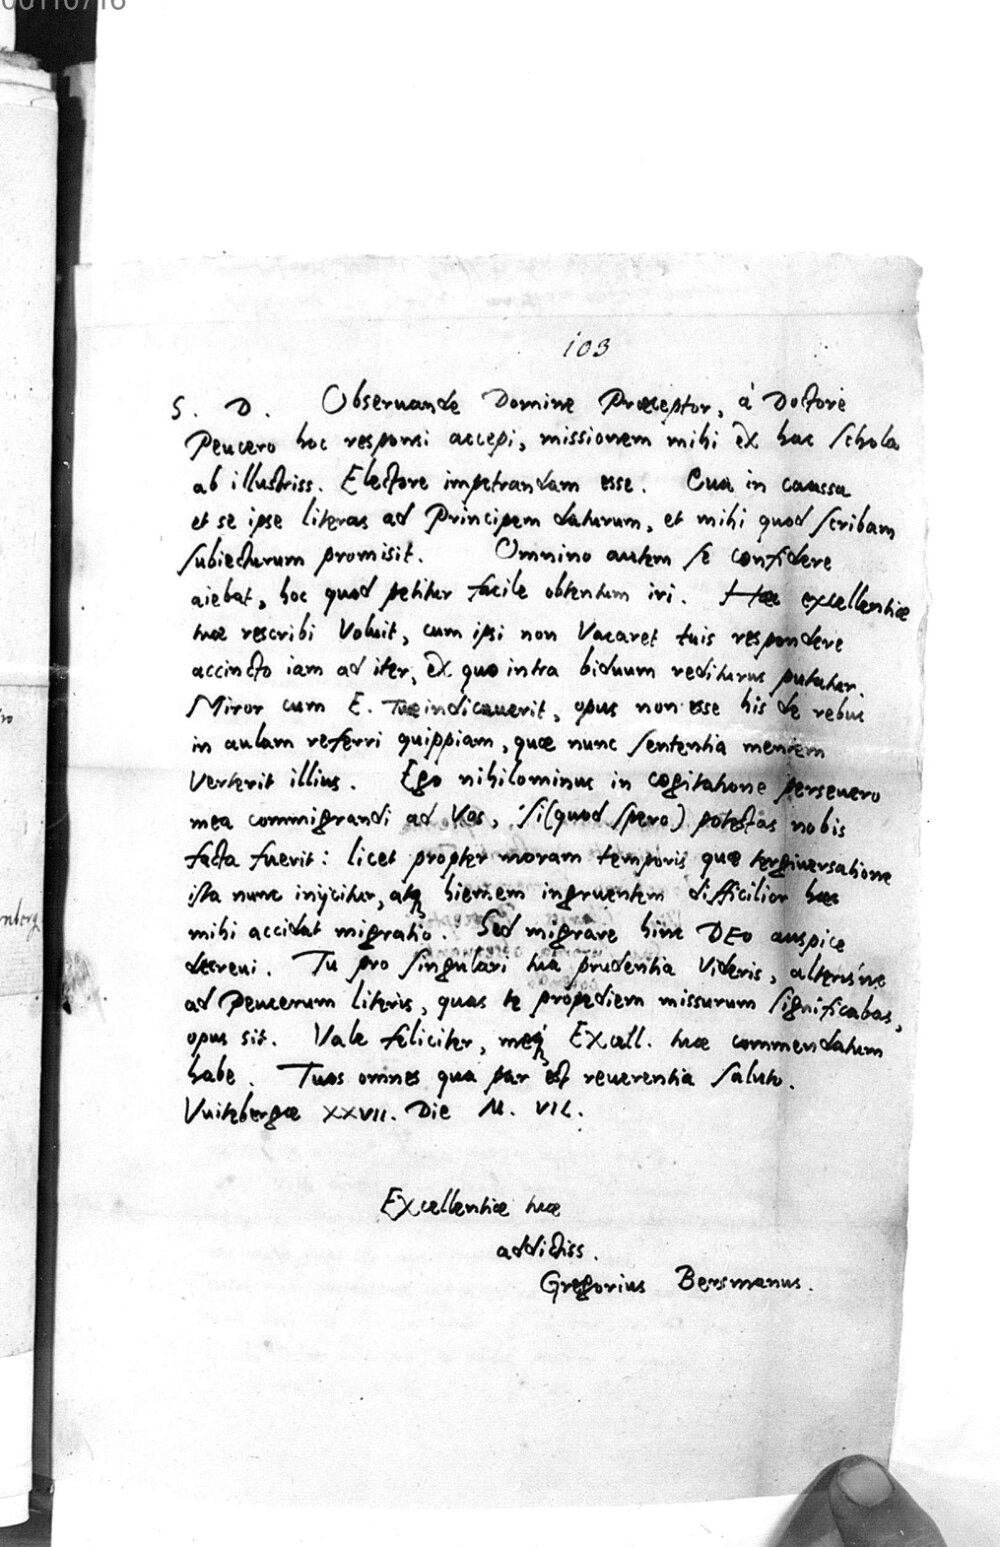 00110716
103
S. D. Obseruande Domine Præceptor, à Doctore
Peucero hoc responsi accepi, missionem mihi ex hac schola
ab illustriss. Electore impetrandam esse. Qua in caussa
et se ipse literas ad Principem daturum, et mihi quod scribam
subiecturum promisit. Omnino autem se confidere
aiebat, hoc quod petitur facile obtentum iri. Hæc excellentiæ
tuæ rescribi voluit, cum ipsi non vacaret tuis respondere
accincto iam ad iter, ex quo intra biduum rediturus putatur.
Miror cum E. Tuæ indicauerit, opus non esse his de rebus
in aulam referri quippiam, quæ nunc sententia mentem
verterit illius. Ego nihilominus in cogitatione perseuero
mea commigrandi ad Vos, si (quod spero) potestas nobis
facta fuerit: licet propter moram temporis quæ tergiuersatione
ista nunc inijcitur, atq hiemem ingruentem difficilior hæc
mihi accidat migratio. Sed migrare hinc DEO auspice
decreui. Tu pro singulari tua prudentia videris, alterisne
ad Peucerum literis, quas te propediem missurum significabas,
opus sit. Vale feliciter, meq Excell. tuæ commendatum
habe. Tuos omnes qua par est reuerentia saluto.
Vuitebergæ XXVII. Die M. VII.
Excellentiæ tuæ
addictiss.
Gregorius Bersmanus.